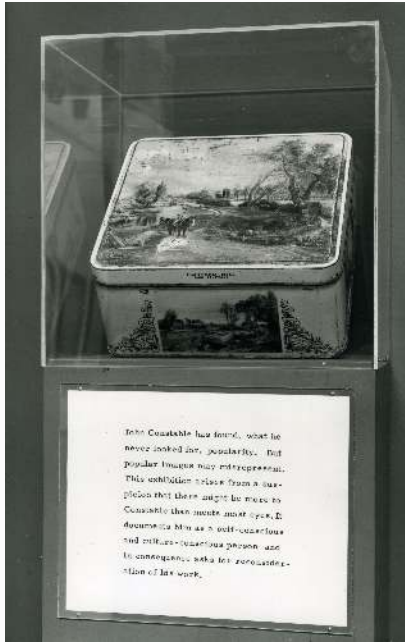 John Constable has found, what he
never looked for, popularity. But
popular images may misrepresent.
This exhibition arises from a sus-
picion that there might be more to
Constable than meets most eyes. It
documents him as a self-conscious
and culture-conscious person and
in consequence asks for reconsider-
ation of his work.